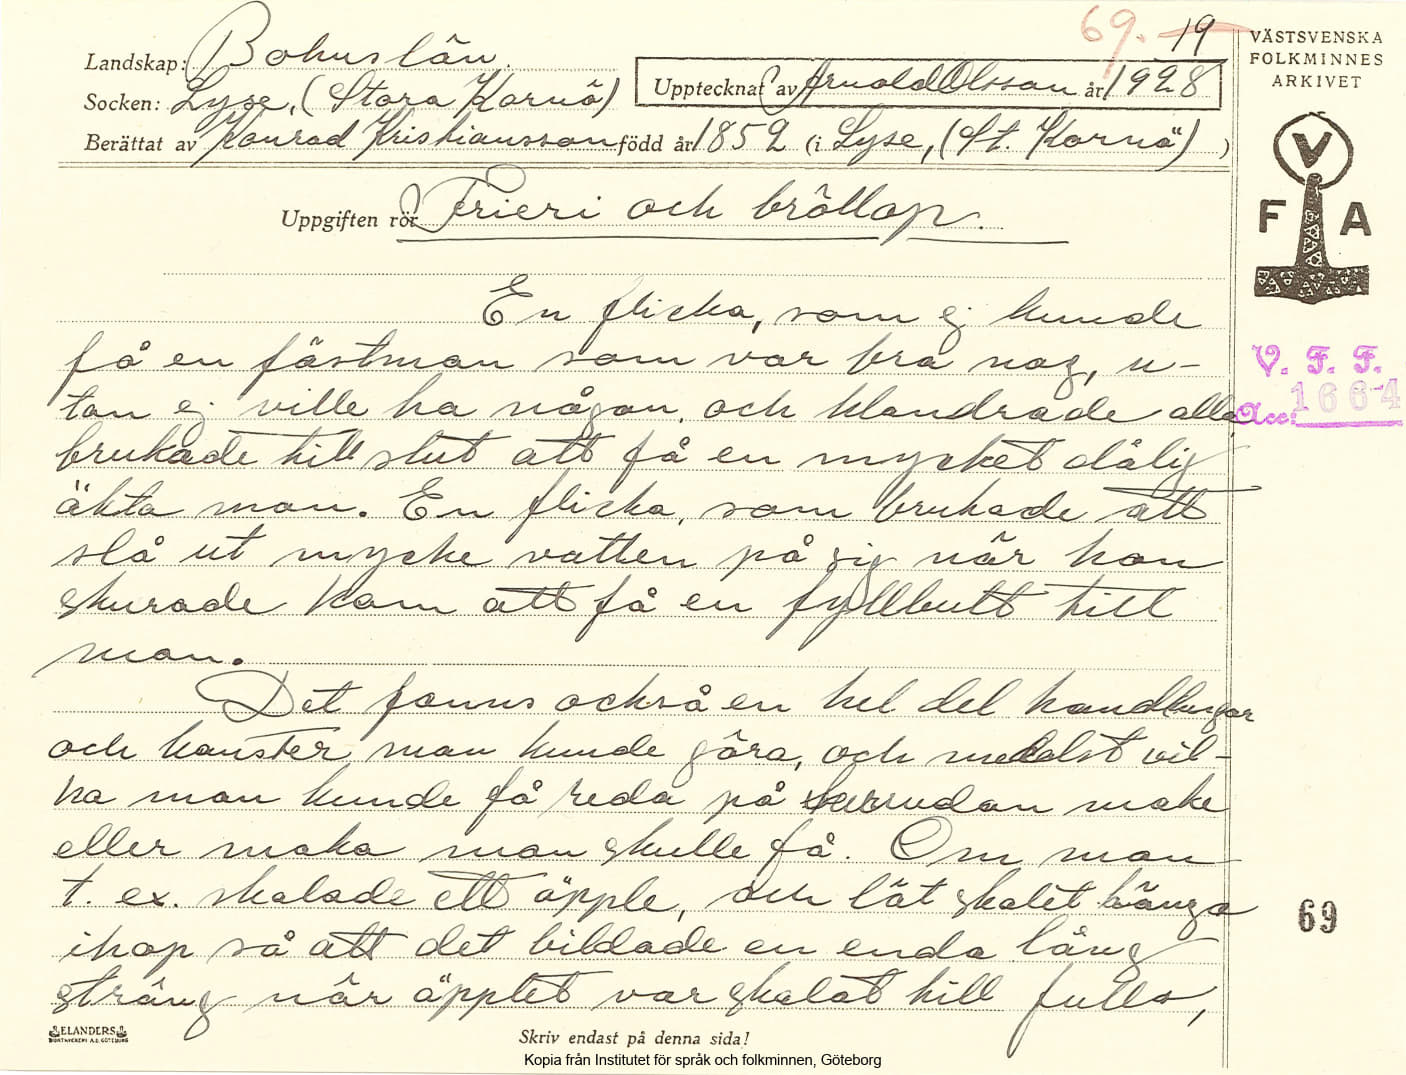 69. 19
Landskap: Bohuslän.
Socken: Lyse, (Stora Kornö)
Upptecknat av Arnold Olsson år 1928
Berättat av Konrad Kristiansson född år 1852 (i Lyse, (St. Kornö) )
Uppgiften rör Frieri och bröllop.
VÄSTSVENSKA
FOLKMINNES
ARKIVET
V
F A
V. F. F.
Acc: 1664
En flicka, som ej kunde
få en fästman som var bra nog, u-
tan ej ville ha någon, och klandrade alla,
brukade till slut att få en mycket dålig
äkta man. En flicka, som brukade att
slå ut mycke vatten på sig när hon
skurade kom att få en fyllbult till
man.
Det fanns också en hel del handlingar
och konster man kunde göra, och medelst vil-
ka man kunde få reda på hurudan make
eller maka man skulle få. Om man
t. ex. skalade ett äpple, och lät skalet hänga
ihop så att det bildade en enda lång
sträng när äpplet var skalat till fullo,
69
ELANDERS
BOKTRYCKERI A.B. GÖTEBORG
Skriv endast på denna sida!
Kopia från Institutet för språk och folkminnen, Göteborg